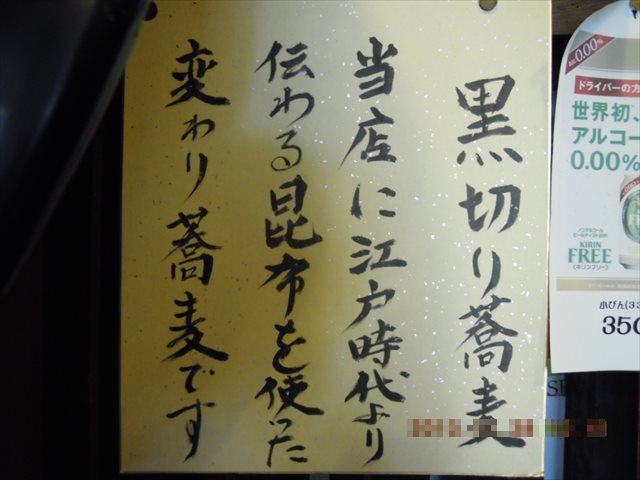 黒切り蕎麦
当店に江戸時代より
伝わる昆布を使った
変わり蕎麦です
0.00%
ドライバーの方
世界初、
アルコー
0.00%
ノンアルコール
KIRIN
FREE
(キリンフリー)
小びん(33
350